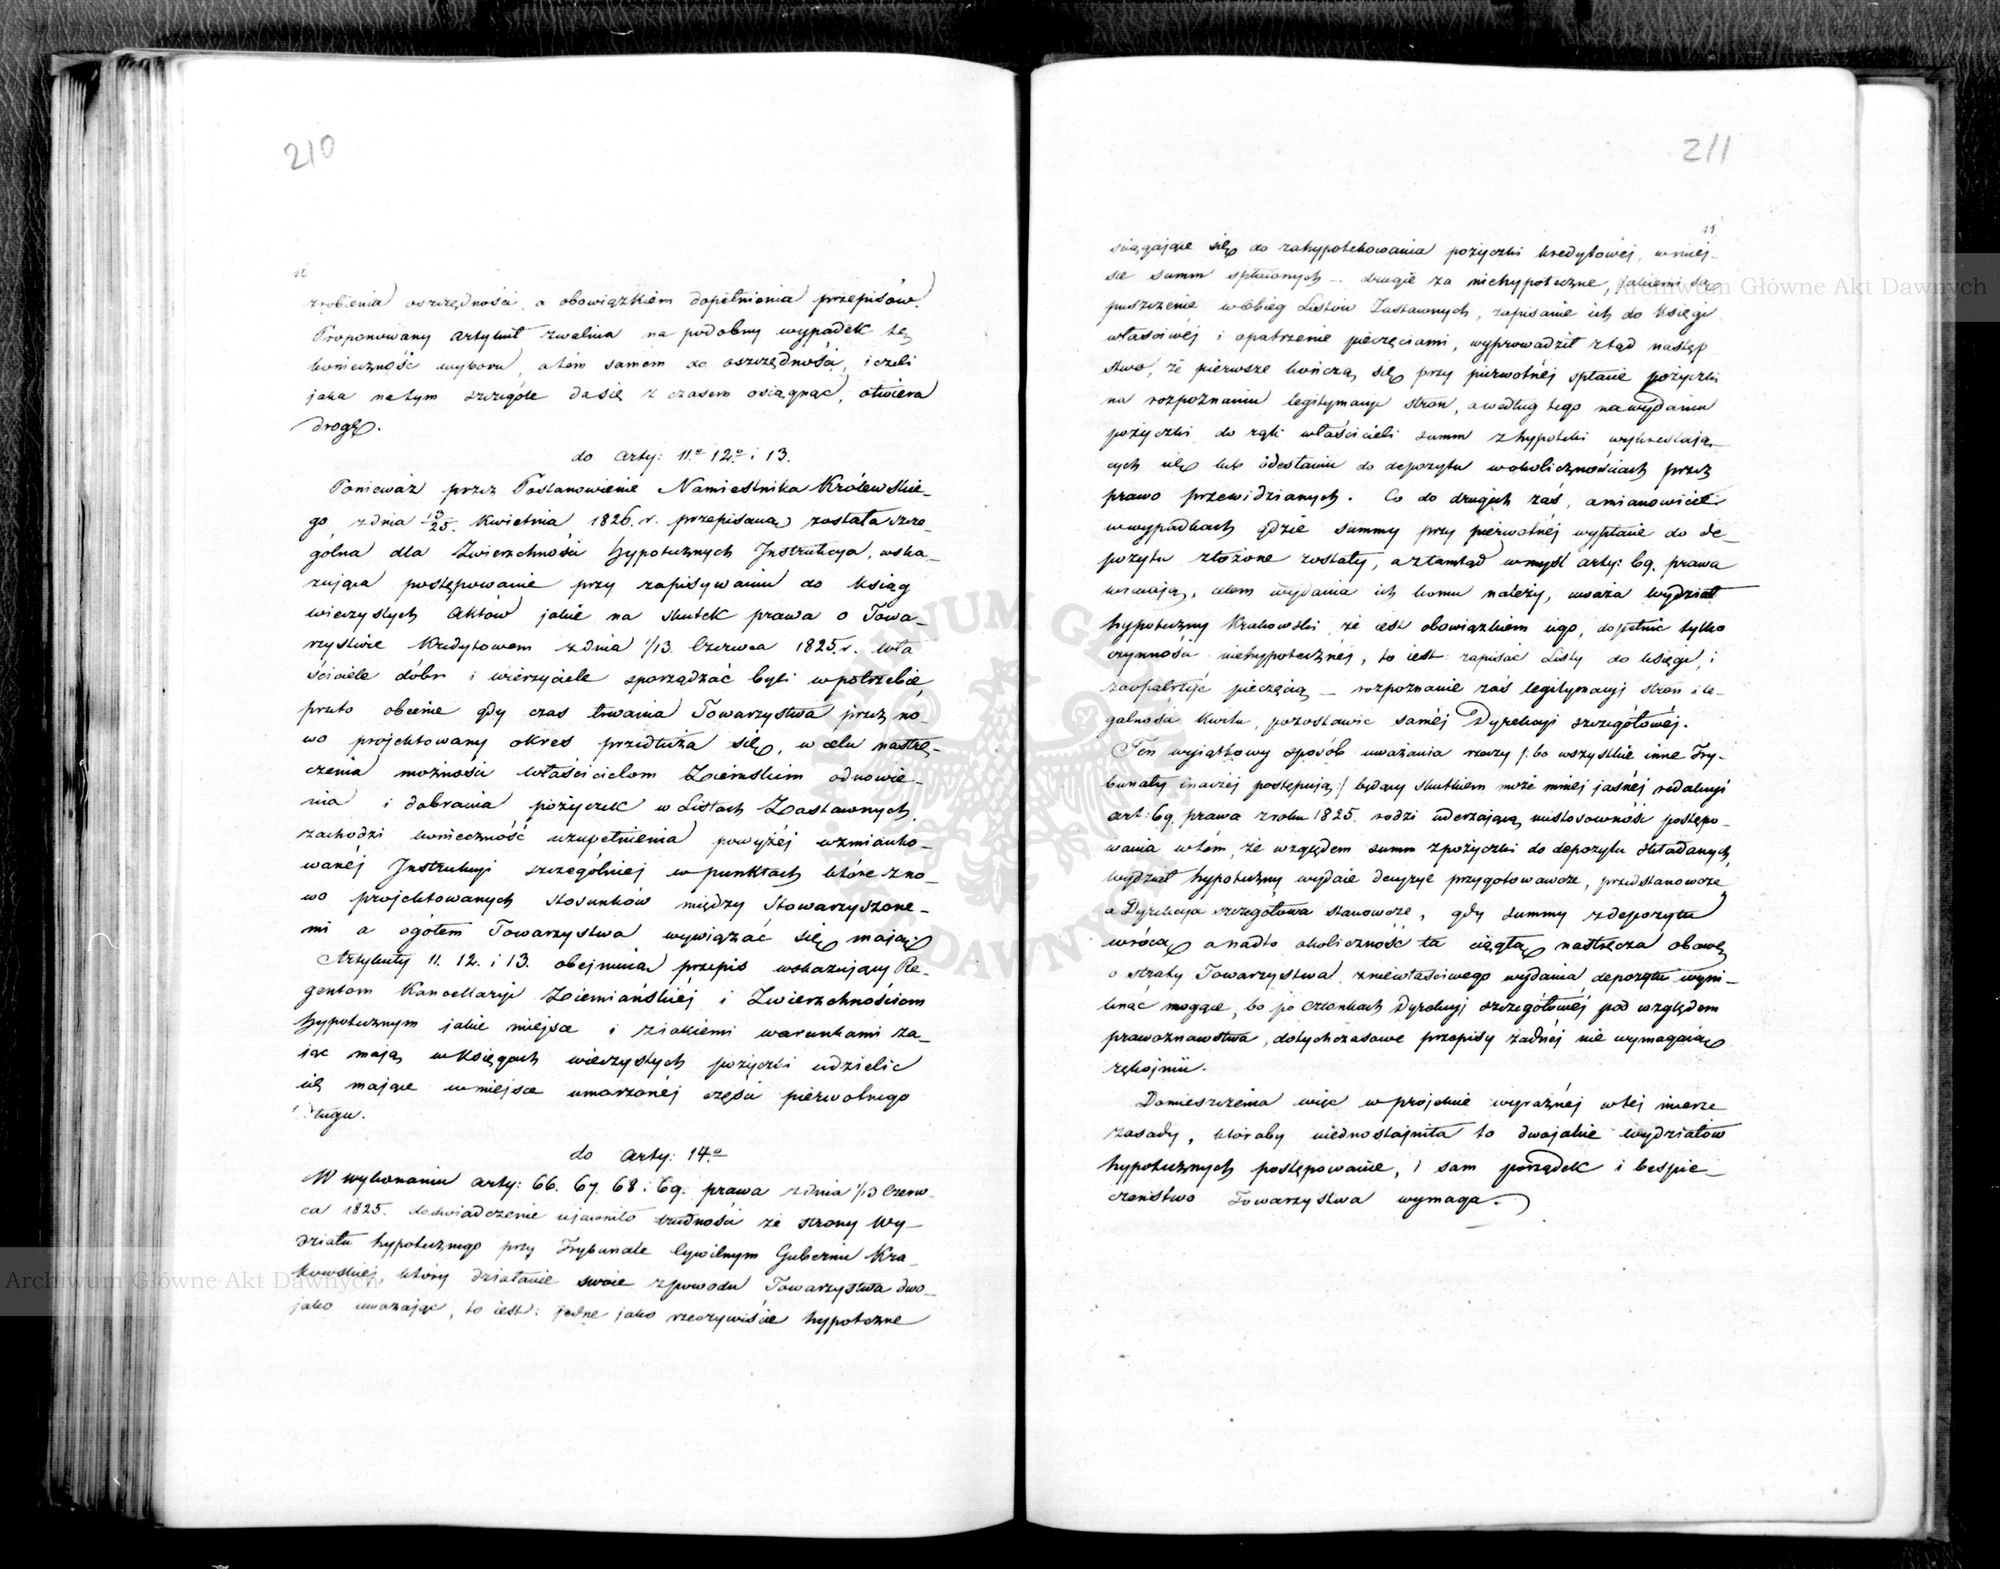 210
10
zrobienia oszczędności, a obowiązkiem dopełnienia przepisów.
Proponowany artykuł zwalnia na podobny wypadek tę
konieczność wyboru, a tém samem do oszczędności, ieżeli
jaka na tym szczególe da się z czasem osiągnąć, otwiera
drogę.
do Arty: 11.º 12.º i 13.
Ponieważ przez Postanowienie Namiestnika Królewskie-
go z dnia 13/25. Kwietnia 1826. r. przepisaną została szcze-
gólna dla Zwierzchności hypotecznych Instrukcja, wska-
zująca postępowanie przy zapisywaniu do ksiąg
wieczystych Aktów jakie na skutek prawa o Towa-
rzystwie Kredytowem z dnia 1/13. Czerwca 1825. r. wła
ściciele dóbr i wierzyciele sporządzać byli w potrzebie,
przeto obecnie gdy czas trwania Towarzystwa przez no-
wo projektowany okres przedłuża się, w celu nastrę-
czenia możności właścicielom Ziemskim odnowie-
nia i dobrania pożyczek w Listach Zastawnych,
zachodzi konieczność uzupełnienia powyżéj wzmianko-
wanéj Instrukcyi szczególniej w punktach które z no-
wo projektowanych stosunków między Stowarzyszone-
mi a ogółem Towarzystwa wywiązać się mają.
Artykuły 11. 12. i 13. obejmują przepis wskazujący Re-
gentom Kancellaryi Ziemiańskiéj i Zwierzchnościom
hypotecznym jakie miejsce i z iakiemi warunkami za-
jąć mają w księgach wieczystych pożyczki udzielić
się mające w miejsce umorzonéj części pierwotnego
długu.
do Arty: 14.º
W wykonaniu arty: 66. 67. 68. i 69. prawa z dnia 1/13 Czerw-
ca 1825. doświadczenie ujawniło trudności ze strony Wy-
działu hypotecznego przy Trybunale Cywilnym Gubernii Kra-
kowskiéj, który działanie swoie z powodu Towarzystwa dwo-
jako uważając, to iest: jedne jako rzeczywiście hypoteczne
211
11
ściągające się do zahypotekowania pożyczki kredytowéj, w miej-
sce summ spłaconych – drugie za niehypoteczne, jakiemi są
puszczenie w obieg Listów Zastawnych, zapisanie ich do księgi
właściwéj i opatrzenie pieczęciami, wyprowadził ztąd następ
stwo, że pierwsze kończą się przy pierwotnéj spłacie pożyczki
na rozpoznaniu legitymacyi stron, a według tego na wydaniu
pożyczki do rąk właścicieli summ z hypoteki wykreślają-
cych się lub odesłaniu do depozytu w okolicznościach przez
prawo przewidzianych. Co do drugich zaś, a mianowicie
w wypadkach gdzie summy przy pierwotnéj wypłacie do de-
pozytu złożone zostały, a ztamtąd w myśl arty: 69. prawa
wracają, celem wydania ich komu należy, uważa wydział
hypoteczny Krakowski, że iest obowiązkiem iego, dopełnić tylko
czynności niehypotecznéj, to iest: zapisać Listy do księgi, i
zaopatrzyć pieczęcią – rozpoznanie zaś legitymacyi stron i le-
galności kwitu, pozostawić saméj Dyrekcyi szczegółowéj.
Ten wyjątkowy sposób uważania rzeczy /: bo wszystkie inne Try-
bunały inaczéj postępują :/ będący skutkiem może mniéj jasnéj redakcyi
art: 69. prawa z roku 1825. rodzi uderzającą niestosowność postępo-
wania w tém, że względem summ z pożyczki do depozytu składanych,
wydział hypoteczny wydaie decyzye przygotowawcze, przedstanowcze
a Dyrekcja szczegółowa stanowcze, gdy summy z depozytu
wrócą, a nadto okoliczność ta ciągłą nastręcza obawę
o straty Towarzystwa z niewłaściwego wydania depozytu wyni-
knąć mogące, bo po członkach Dyrekcyi szczegółowéj pod względem
prawoznawstwa, dotychczasowe przepisy żadnéj nie wymagaią
rękojmii.
Domieszczenia więc w projekcie wyraźnéj w téj mierze
zasady, któraby uiednostajniła to dwojakie wydziałów
hypotecznych postępowanie, i sam porządek i bespie-
czeństwo Towarzystwa wymaga.
Archiwum Główne Akt Dawnych
Archiwum Główne Akt Dawnych
ARCHIWUM GŁÓWNE AKT DAWNYCH